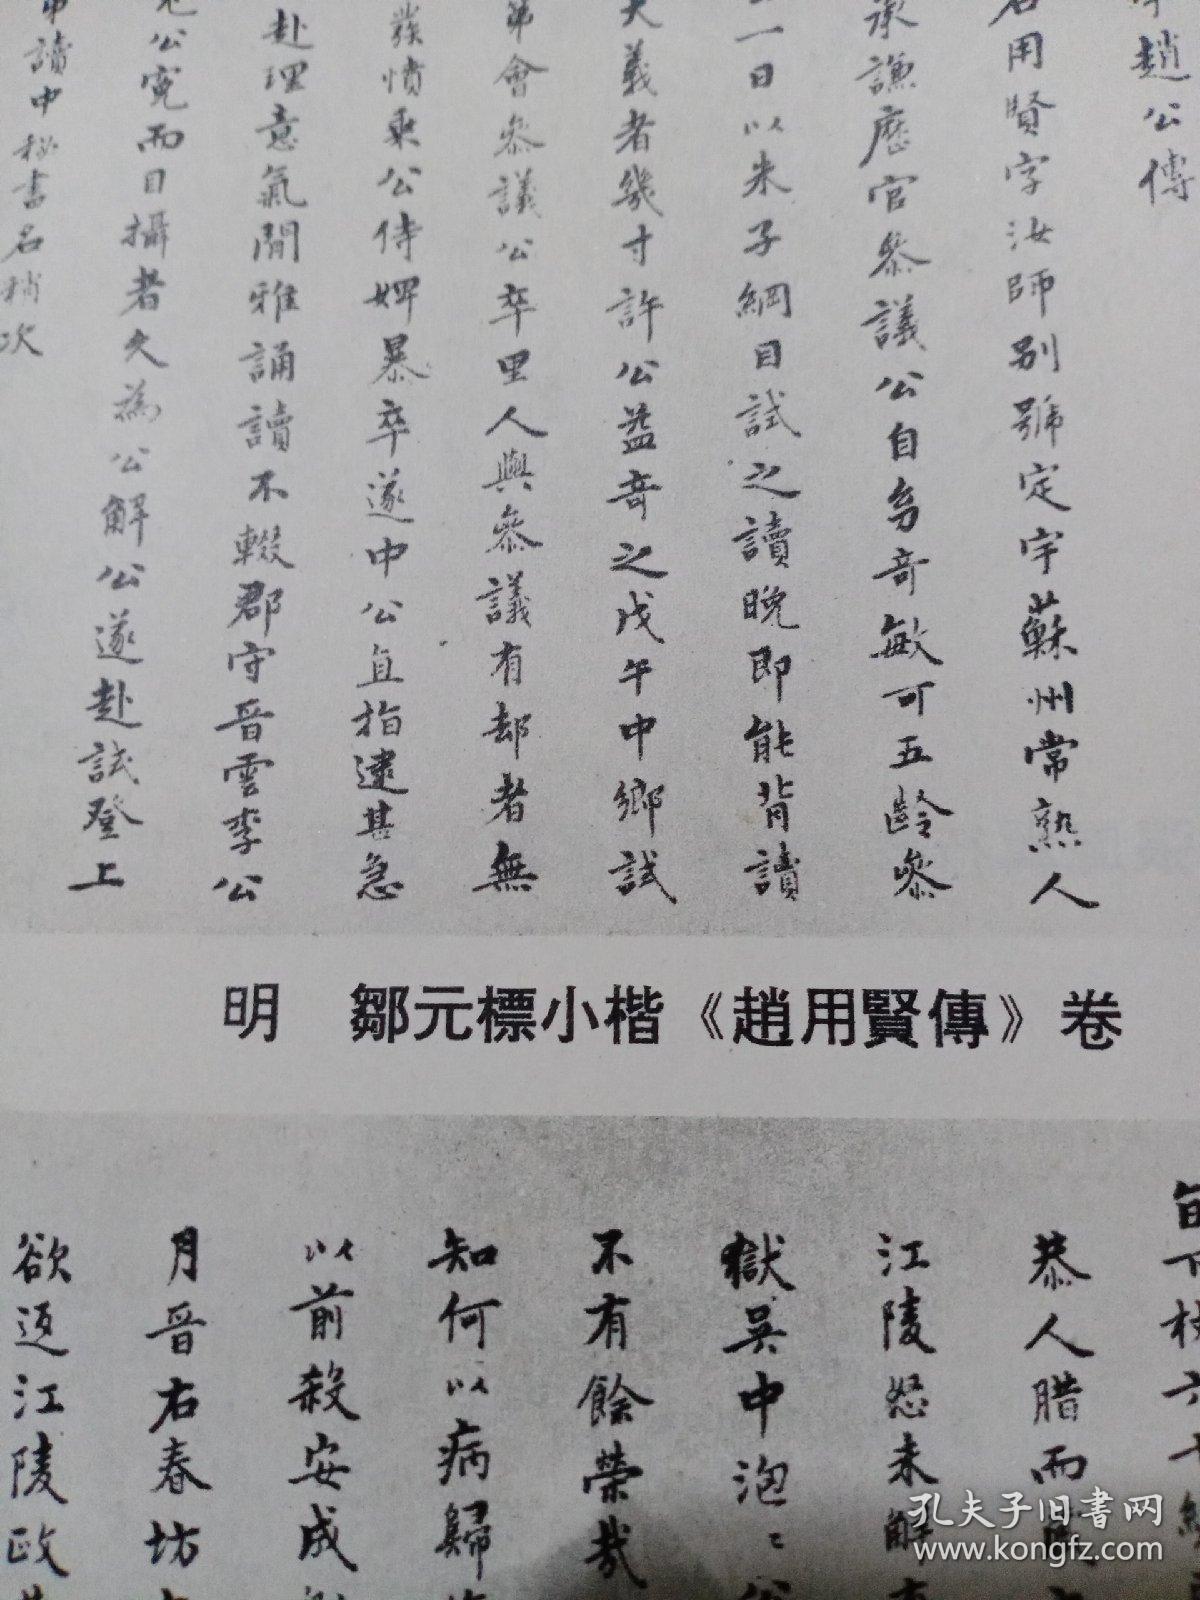 趙公傳
用賢字汝師別號定宇蘇州常熟人
承謙歷官叅議公自㓜奇敏可五齡叅
一日以朱子綱目試之讀晚即能背讀
大義者幾寸許公益奇之戊午中鄉試
第會叅議公卒里人與叅議有却者無
發憤乘公侍婢暴卒遂中公直指逮甚急
赴理意氣閒雅誦讀不輟郡守晉雲李公
公寃而目攝者久為公解公遂赴試登上
讀中秘書名稍次
明 鄒元標小楷《趙用賢傳》卷
恭人腊而
江陵怒未解
獄吳中泡〻
不有餘榮哉
知何以病歸
以前殺安成
月晉右春坊
欲返江陵政
孔夫子旧书网
www.kongfz.com